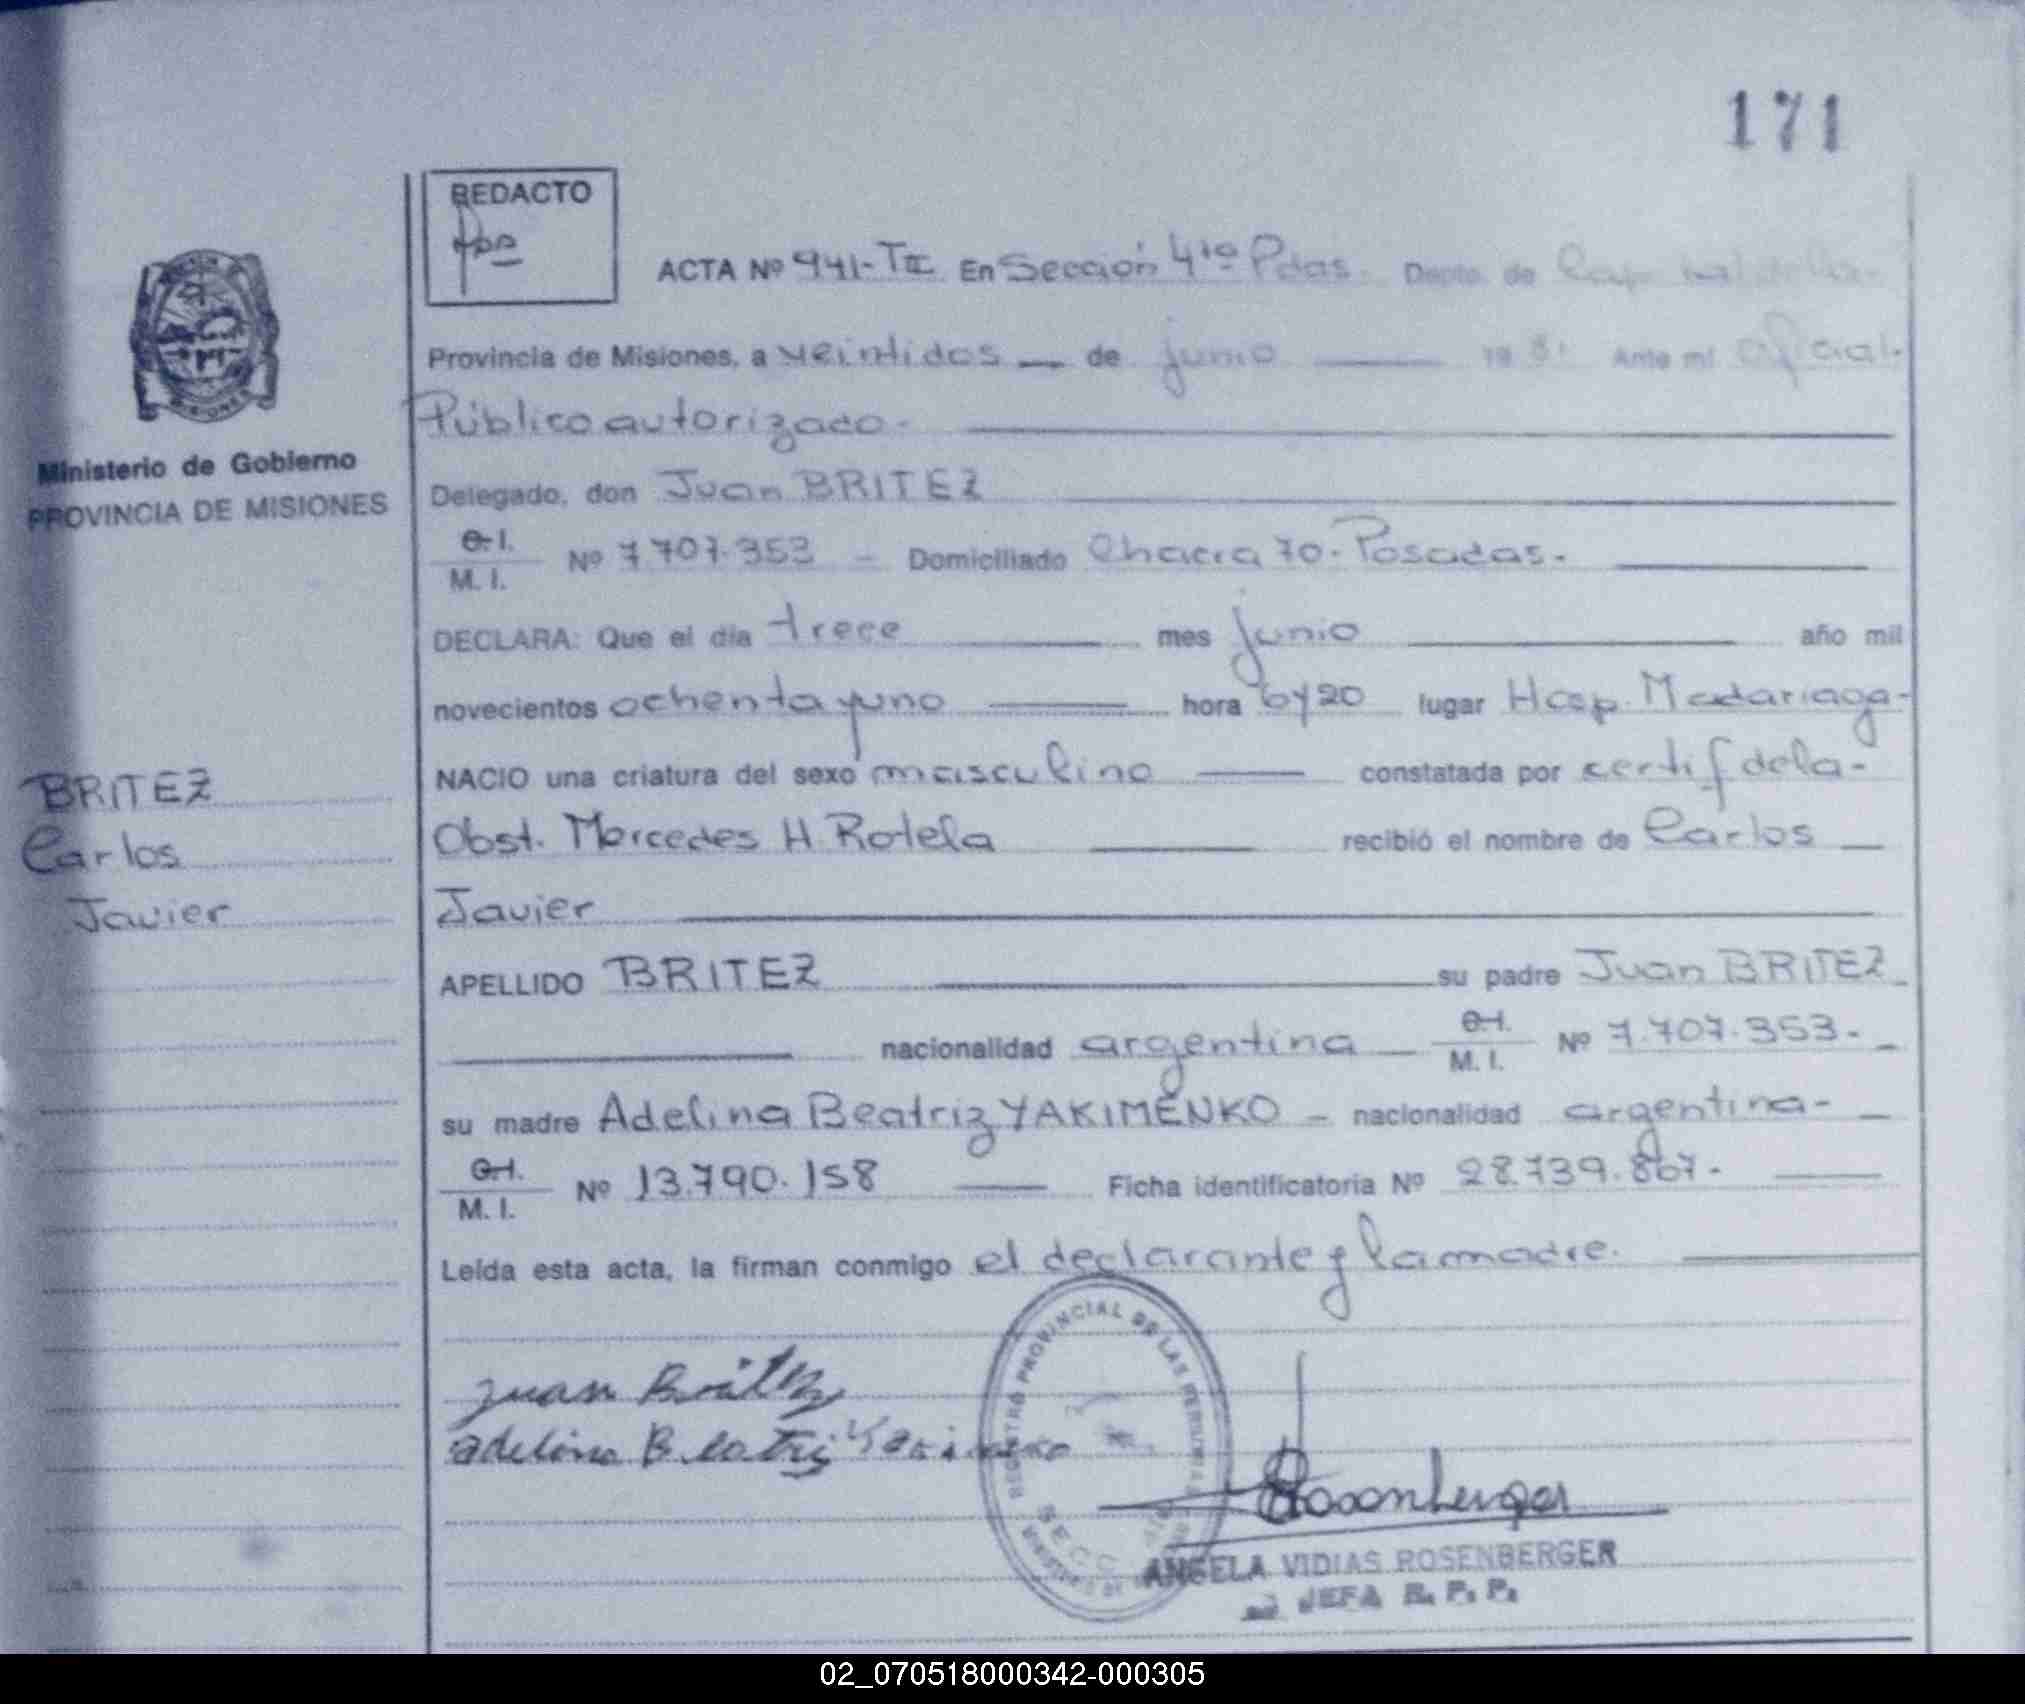 171
REDACTO
ACTA Nº 941-TII En Sección 4ta Pdas. Depto. de Cap
Provincia de Misiones, a veintidos de junio 1981 Ante mí oficial.
Público autorizado.
Delegado, don Juan BRITEZ
C. I. M. I. Nº 7.707.353 - Domiciliado Chacra 70 - Posadas.
DECLARA: Que el día trece mes junio año mil
novecientos ochenta y uno hora 6y20 lugar Hosp. Madariaga-
NACIO una criatura del sexo masculino constatada por certif de la-
Obst. Mercedes H. Rotela recibió el nombre de Carlos
Javier
APELLIDO BRITEZ su padre Juan BRITEZ
nacionalidad argentina C. I. M. I. Nº 7.707.353.-
su madre Adelina Beatriz YAKIMENKO - nacionalidad argentina-
C. I. M. I. Nº 13.790.158 Ficha identificatoria Nº 28.739.867.
Leída esta acta, la firman conmigo el declarante y la madre.
Juan Britez
adelina Beatriz Yakimenko
Rosenberger
ANGELA VIDIAS ROSENBERGER
JEFA R. P. P.
REGISTRO PROVINCIAL DE LAS PERSONAS
SECC
MISIONES
Ministerio de Gobierno
PROVINCIA DE MISIONES
BRITEZ
Carlos
Javier
02_070518000342-000305